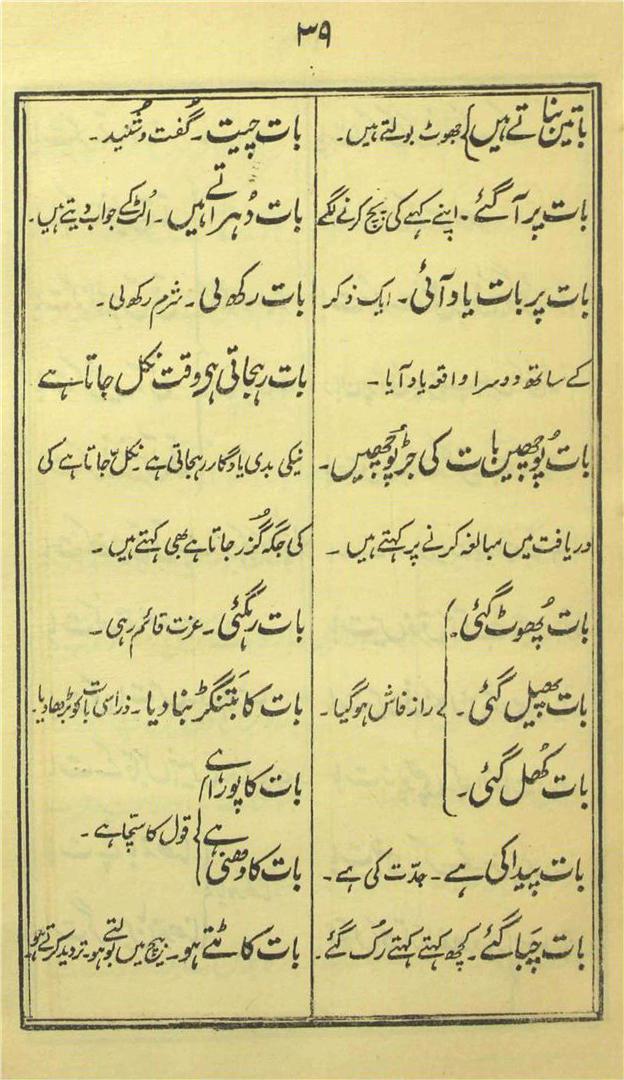 ۳۹
باتین بناتے ہیں } جھوٹ بولتے ہیں۔
بات پر آگئے۔ اپنے کہے کی پچ کرنے لگے
بات پر بات یاد آئی۔ ایک ذکر
کے ساتھ دوسرا واقعہ یاد آیا۔
بات پُوچھیں بات کی جڑ پُوچھیں۔
دریافت میں مبالغہ کرنے پر کہتے ہیں۔
بات پُھوٹ گئی۔
بات پھیل گئی۔ } راز فاش ہوگیا۔
بات کُھل گئی۔
بات پیدا کی ہے۔ جدّت کی ہے۔
بات چَبا گئے۔ کچھ کہتے کہتے رک گئے۔
بات چیت۔ گُفت و شُنید۔
بات دُہراتے ہیں۔ اُلٹ کے جواب دیتے ہیں۔
بات رکھ لی۔ شرم رکھ لی۔
بات رہجاتی ہی وقت نکل جاتا ہے
نیکی بدی یادگار رہجاتی ہے نکل جاتا ہے کی
کی جگہ گُزر جاتا ہے بھی کہتے ہیں۔
بات رہگئی۔ عزت قائم رہی۔
بات کا بَتنگڑ بنا دیا۔ ذراسی بات کو بڑھا دیا۔
بات کا پورا ہے
بات کا دھنی ہے } قول کا سچّا ہے۔
بات کاٹتے ہو۔ بیچ میں بولتے ہو۔ تردید کرتے ہو۔